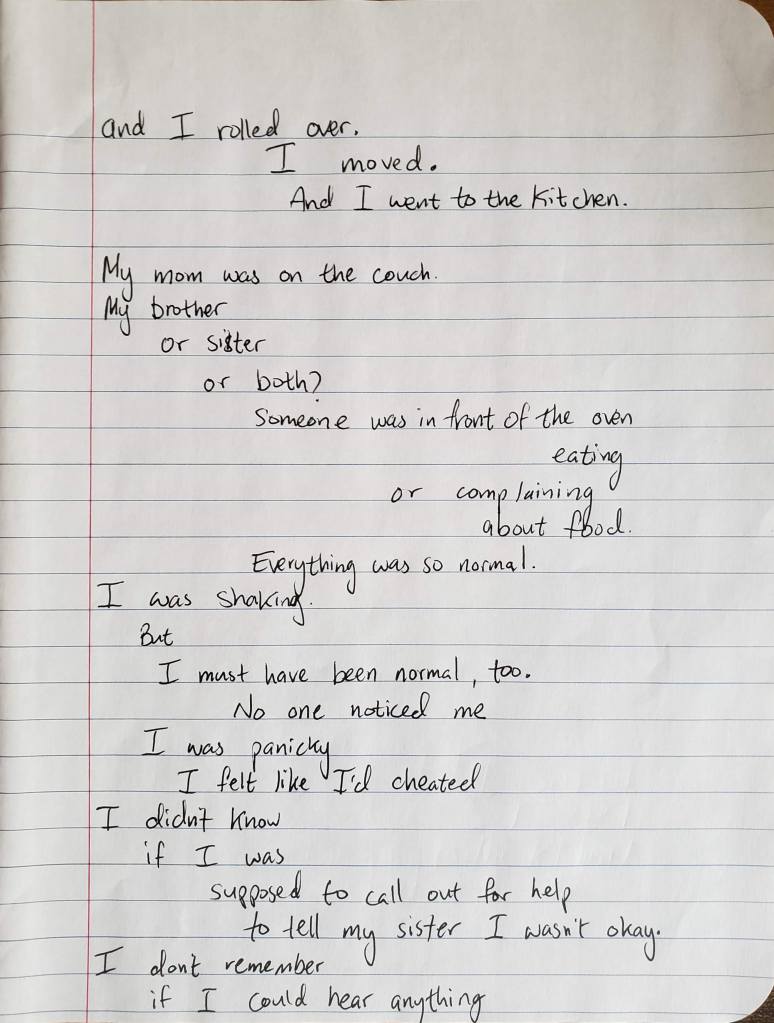 and I rolled over.
I moved.
And I went to the kitchen.
My mom was on the couch.
My brother
or sister
or both?
Someone was in front of the oven
eating
or complaining
about food.
Everything was so normal.
I was shaking.
But
I must have been normal, too.
No one noticed me
I was panicky
I felt like I'd cheated
I didn't know
if I was
supposed to call out for help
to tell my sister I wasn't okay.
I don't remember
if I could hear anything